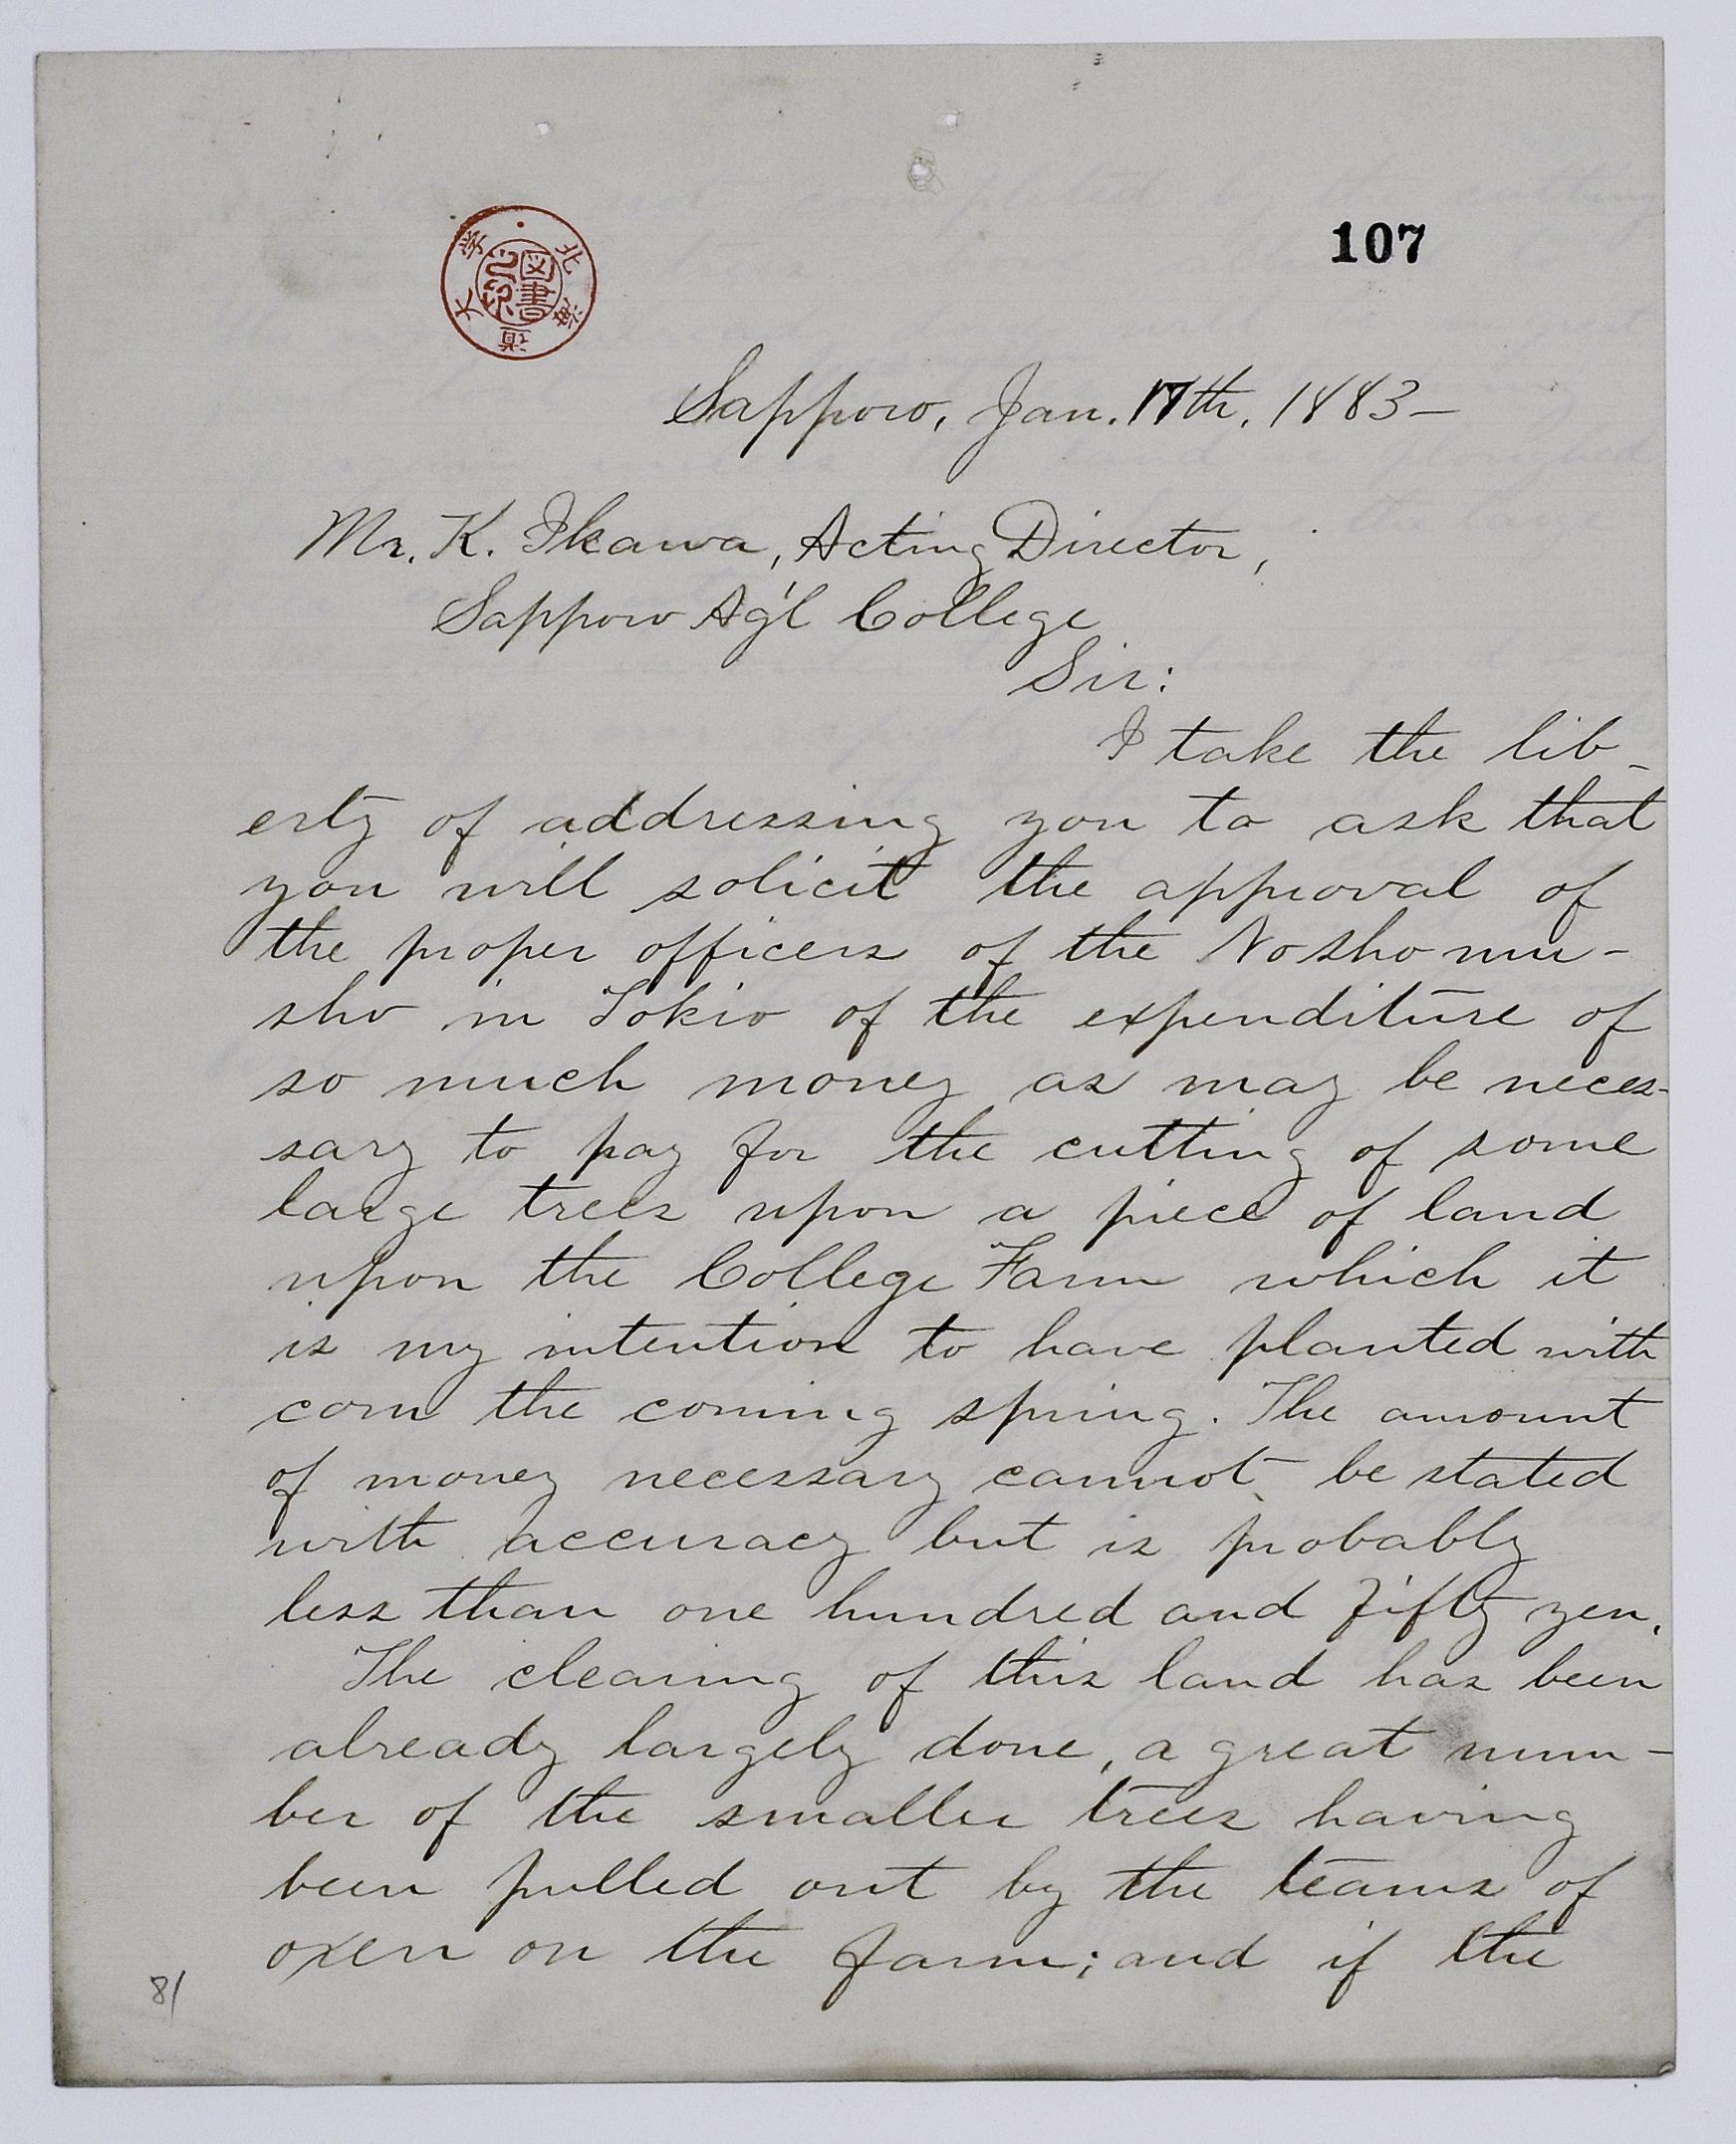 107
北海道大学
図書
Sapporo, Jan. 17th, 1883—
Mr. K. Ikawa, Acting Director,
Sapporo Ag'l College
Sir:
I take the lib-
erty of addressing you to ask that
you will solicit the approval of
the proper officers of the Noshomu-
sho in Tokio of the expenditure of
so much money as may be neces-
sary to pay for the cutting of some
large trees upon a piece of land
upon the College Farm which it
is my intention to have planted with
corn the coming spring. The amount
of money necessary cannot be stated
with accuracy but is probably
less than one hundred and fifty yen.
The clearing of this land has been
already largely done, a great num-
ber of the smaller trees having
been pulled out by the teams of
oxen on the farm; and if the
81